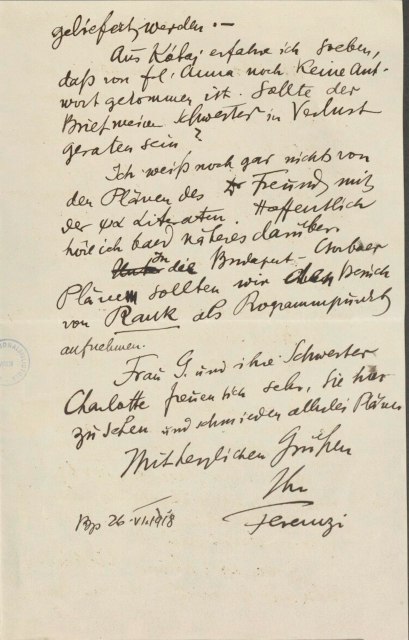 geliefert werden. —
Aus Kótaj erfahre ich soeben,
daß von frl. Anna noch keine Ant-
wort gekommen ist. Sollte der
Brief meiner Schwester in Verlust
geraten sein?
Ich weiß noch gar nichts von
den Plänen des Dr Freund mit
der ψα Literatur. Hoffentlich
höre ich bald näheres darüber.
In die Budapest-
Pläne sollten wir den Besuch
von Rank als Programmpunkt
aufnehmen.
Frau G. und ihre Schwester
Charlotte freuen sich sehr, Sie hier
zu sehen und schmieden allerlei Pläne
Mit herzlichen Grüßen
Ihr
Ferenczi
Bp 26. VI. 1918